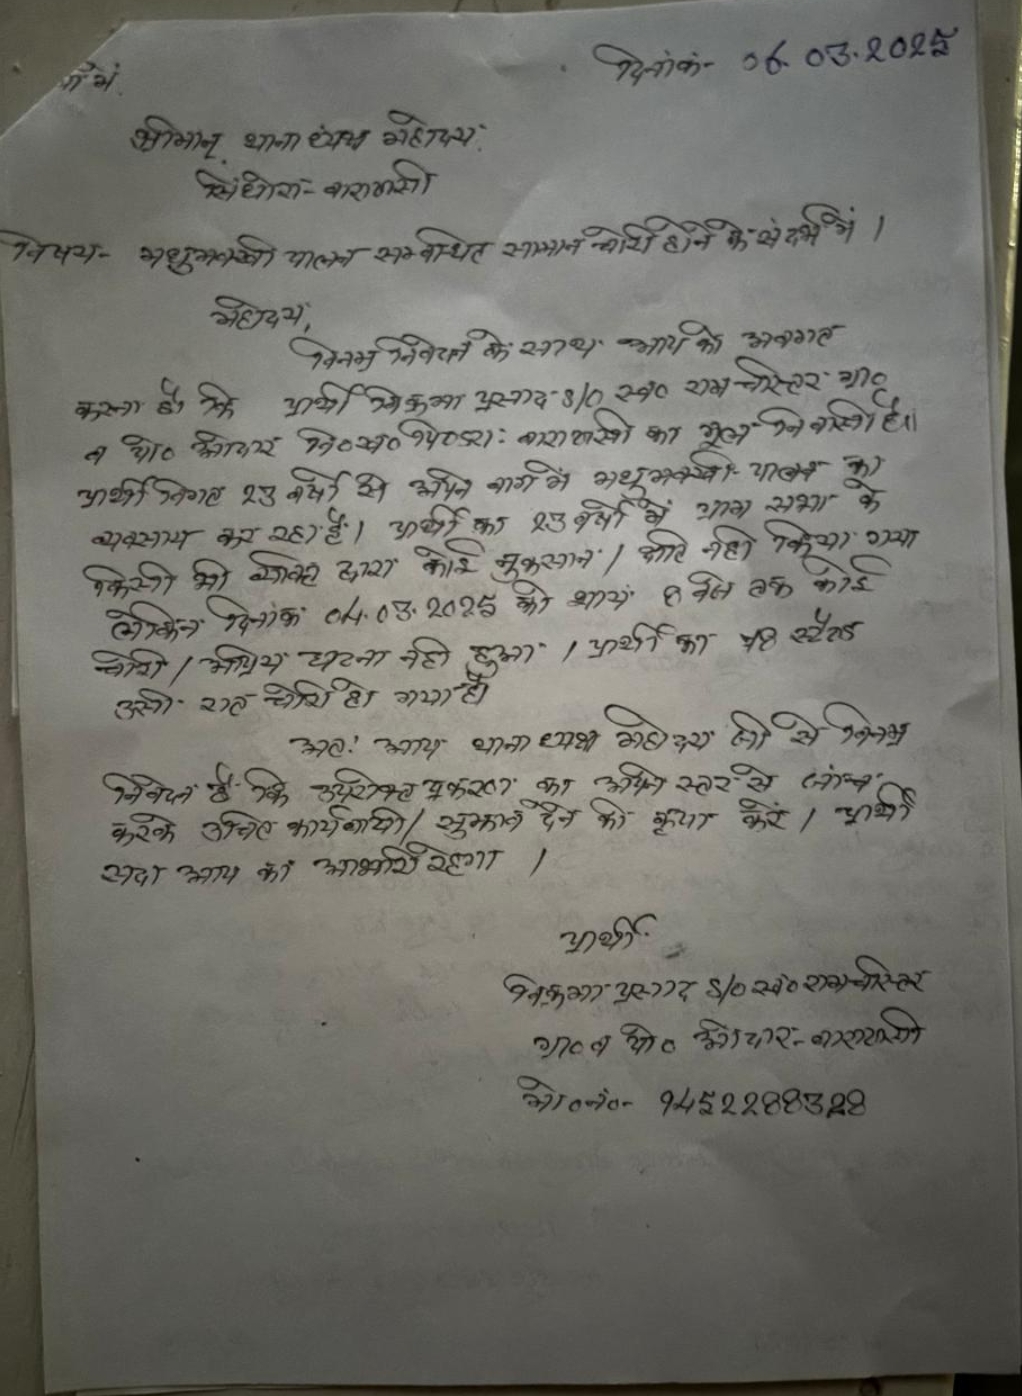 दिनांक- 06.03.2025
में,
श्रीमान् थानाध्यक्ष महोदय,
सिंधोरा- वाराणसी
विषय- मधुमक्खी पालन सम्बन्धित सामान चोरी होने के संदर्भ में।
महोदय,
विनम्र निवेदन के साथ आप को अवगत
करना है कि प्रार्थी विक्रमा प्रसाद S/O स्व० राम ग्रा०
व पो० वि०ख० पिण्डरा: वाराणसी का मूल निवासी है॥
प्रार्थी विगत 23 वर्षों से अपने बाग में मधुमक्खी- पालन का
व्यवसाय कर रहा है। प्रार्थी का 23 वर्षों में ग्राम सभा के
किसी भी व्यक्ति द्वारा कोई नुकसान / क्षति नही किया गया
लेकिन दिनांक 04.03.2025 को शायं 8 बजे तक कोई
चोरी / अप्रिय घटना नही हुआ। प्रार्थी का
उसी रात चोरी हो गया है।
अतः आप थानाध्यक्ष महोदय जी से विनम्र
निवेदन है कि उपरोक्त प्रकरण का अपने स्तर से जांच
करके उचित कार्यवाही/ सुझाव देने की कृपा करें। प्रार्थी
सदा आप का आभारी रहेगा।
प्रार्थी-
विक्रमा प्रसाद S/O स्व० राम
ग्रा० व पो० वाराणसी
मो०नं०- 9452288328